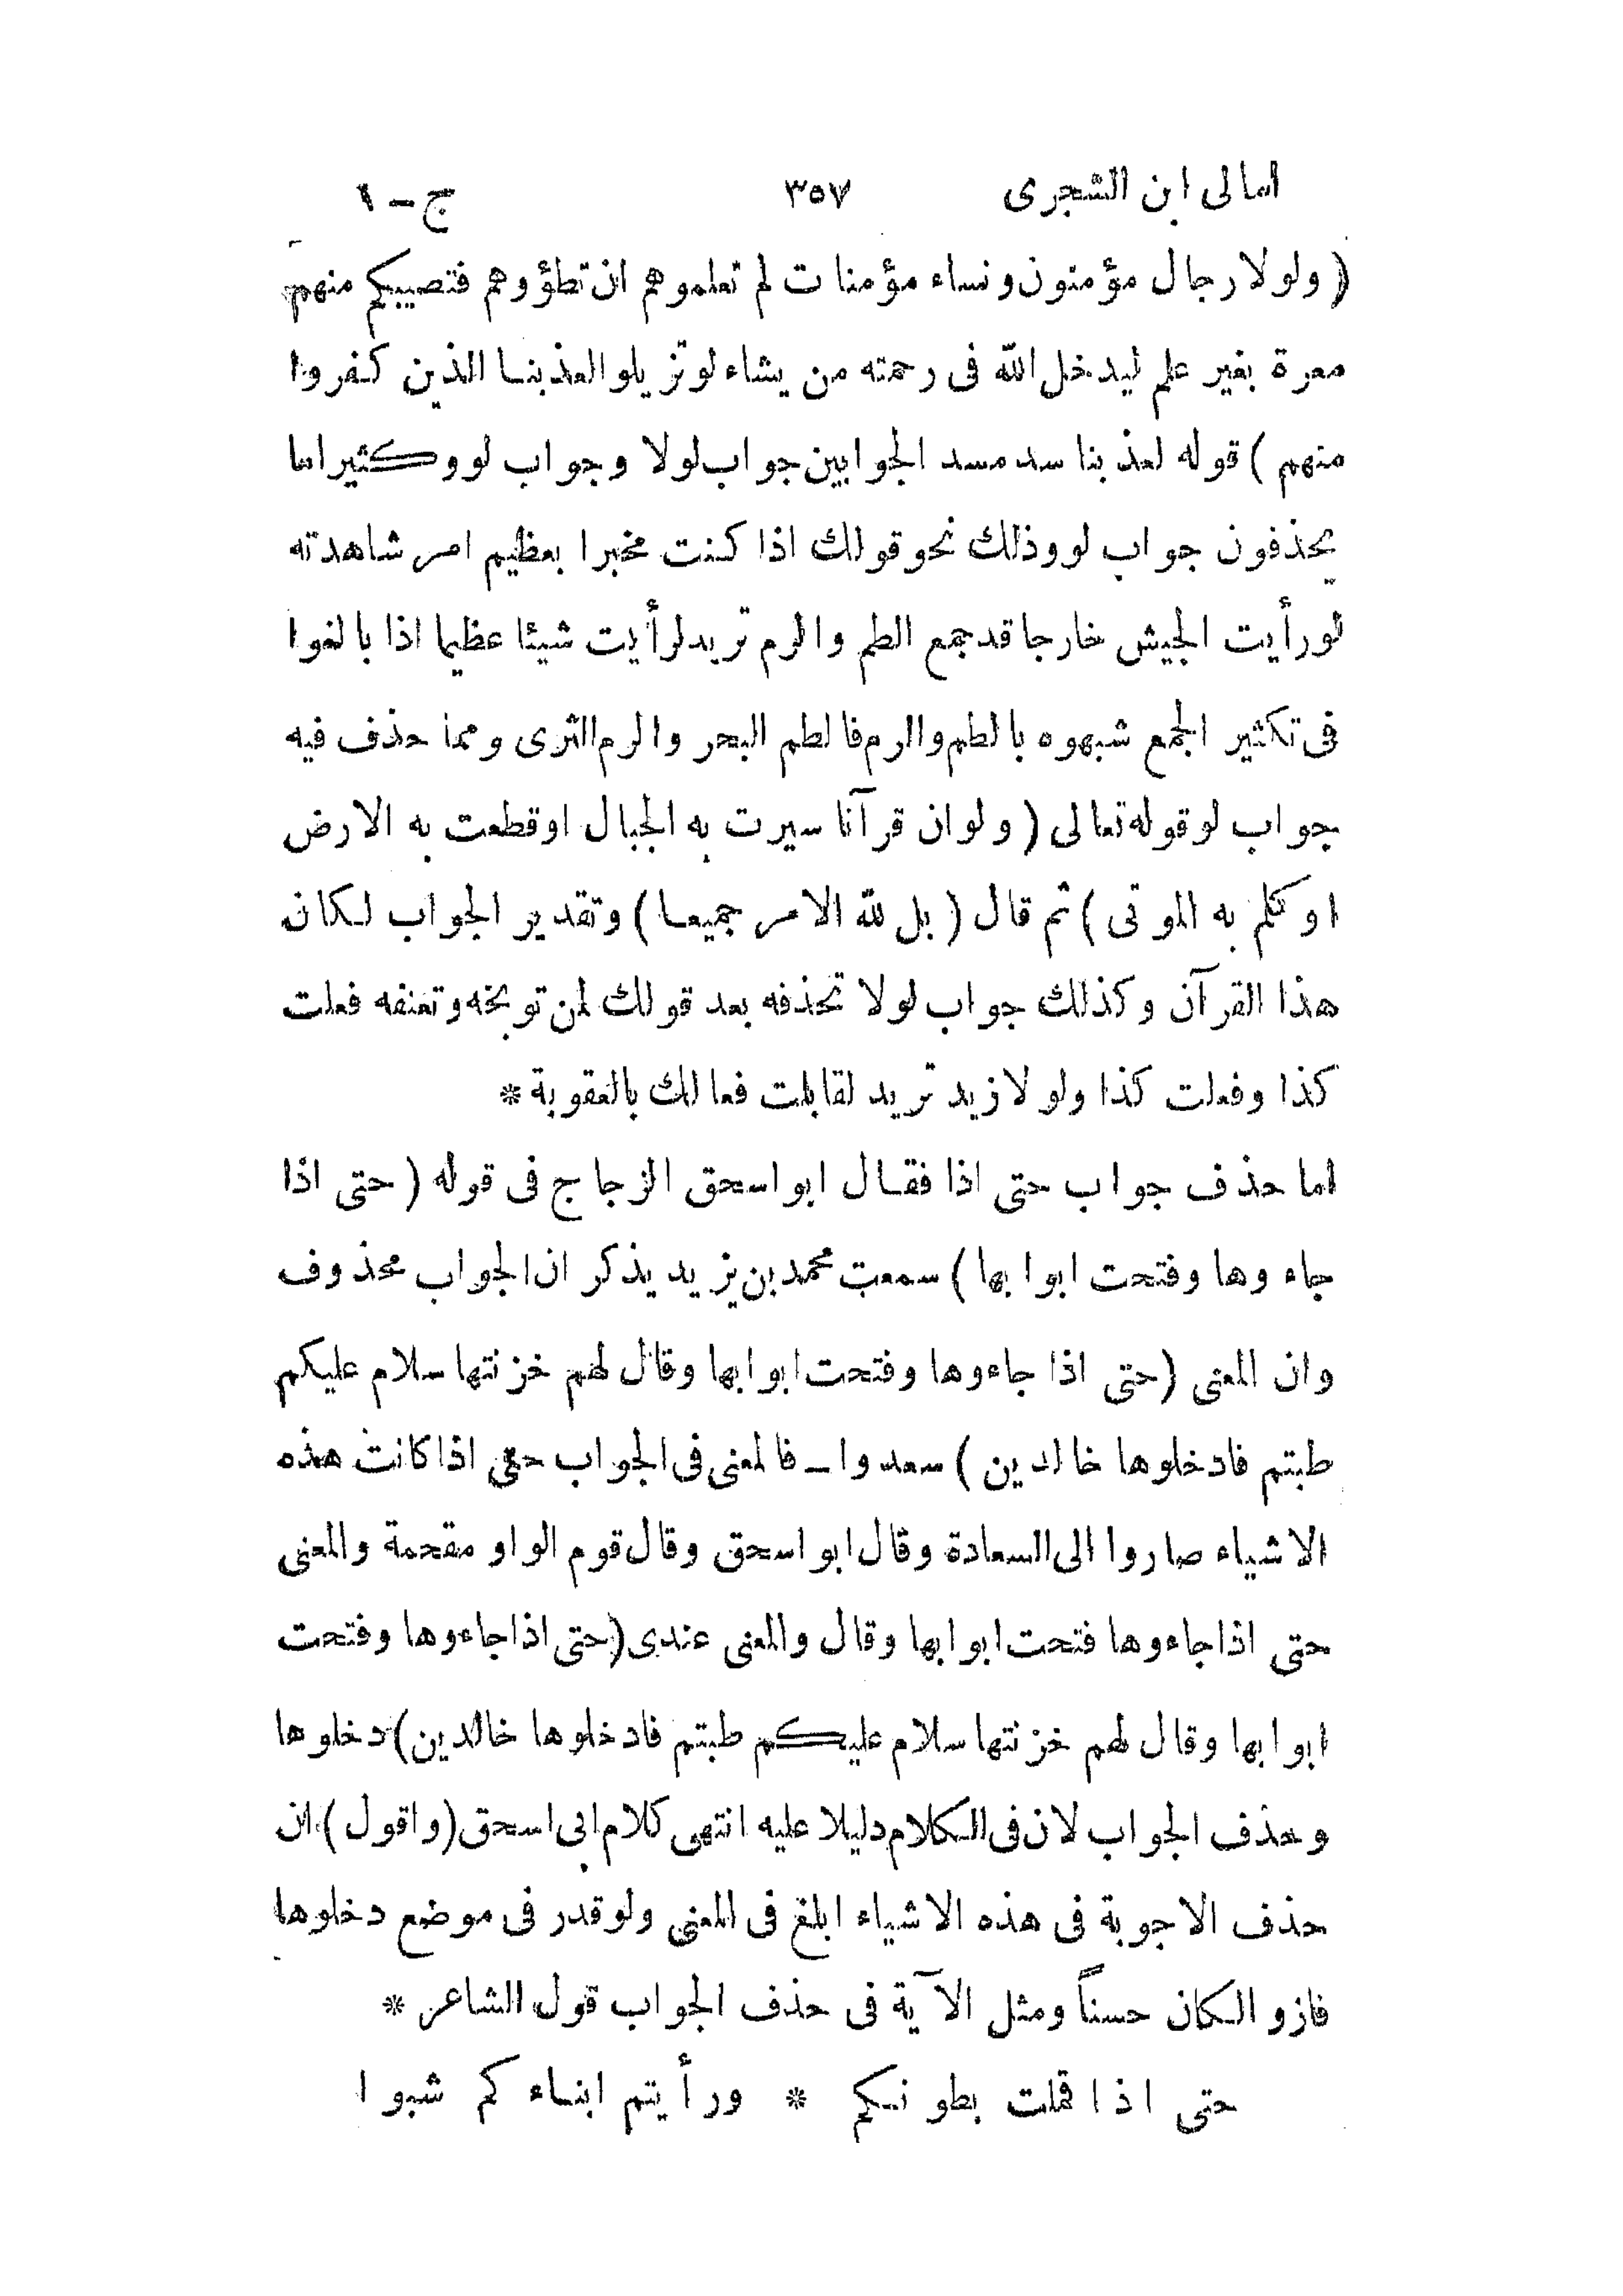 امالى ابن الشجرى ٣٥٧ ج – ١
( ولولا رجال مؤمنون ونساء مؤمنات لم تعلموهم ان تطؤوهم فتصيبكم منهم
معرة بغير علم ليدخل الله فى رحمته من يشاء لوتزيلوا لعذبنا الذين كفروا
منهم ) قوله لعذبنا سد مسد الجوابين جواب لولا وجواب لو وكثيراما
يحذفون جواب لو وذلك نحو قولك اذا كنت مخبرا بعظيم امر شاهدته
لورأيت الجيش خارجا قد جمع الطم والرم تريد لرأيت شيئا عظيما اذا بالغوا
فى تكثير الجمع شبهوه بالطم والرم فالطم البحر والرم الثرى ومما حذف فيه
جواب لو قوله تعالى ( ولوان قرآنا سيرت به الجبال اوقطعت به الارض
اوكلم به الموتى ) ثم قال ( بل لله الامر جميعا ) وتقدير الجواب لكان
هذا القرآن وكذلك جواب لولا تحذفه بعد قولك لمن توبخه وتعنفه فعلت
كذا وفعلت كذا ولولا زيد تريد لقابلت فعالك بالعقوبة *
اما حذف جواب حتى اذا فقال ابو اسحق الزجاج فى قوله ( حتى اذا
جاءوها وفتحت ابوابها ) سمعت محمد بن يزيد يذكر ان الجواب محذوف
وان المعنى (حتى اذا جاءوها وفتحت ابوابها وقال لهم خزنتها سلام عليكم
طبتم فادخلوها خالدين ) سعدوا – فالمعنى فى الجواب حتى اذا كانت هذه
الاشياء صاروا الى السعادة وقال ابو اسحق وقال قوم الواو مقحمة والمعنى
حتى اذا جاءوها فتحت ابوابها وقال والمعنى عندى (حتى اذا جاءوها وفتحت
ابوابها وقال لهم خزنتها سلام عليكم طبتم فادخلوها خالدين) دخلوها
وحذف الجواب لان فى الكلام دليلا عليه انتهى كلام ابى اسحق (واقول) ان
حذف الاجوبة فى هذه الاشياء ابلغ فى المعنى ولوقدر فى موضع دخلوها
فازوا لكان حسناً ومثل الآية فى حذف الجواب قول الشاعر *
حتى اذا قملت بطونكم * ورأيتم ابناءكم شبوا